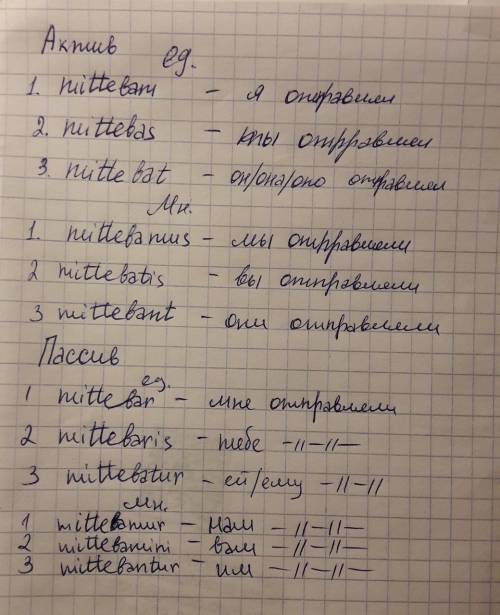 Актив
ед.
1. mittebam – я отправлял
2. mittebas – ты отправлял
3. mittebat – он/она/оно отправлял
Мн.
1. mittebamus – мы отправляли
2 mittebatis – вы отправляли
3 mittebant – они отправляли
Пассив
ед.
1 mittebar – мне отправляли
2 mittebaris – тебе –//–//–
3 mittebatur – ей/ему –//–//
Мн.
1 mittebamur – нам –//–//–
2 mittebamini – вам –//–//–
3 mittebantur – им –//–//–